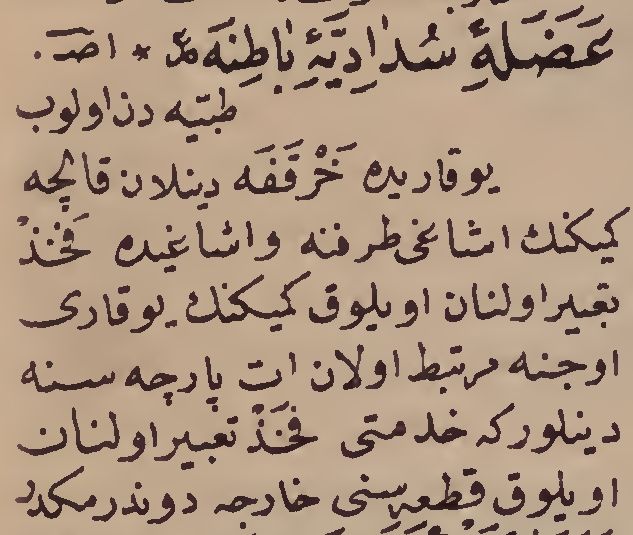 عَضَلَهٔ سُدَادِيَّهٔ بَاطِنَه * اصـ .
طبّيه دن اولوب
يوقاريده خَرْقَفَه دينلان قالچه
كميكنك اشاغى طرفنه واشاغيده فَخْذْ
تعبير اولنان اويلوق كميكنك يوقارى
اوجنه مرتبط اولان ات پارچه سنه
دينلور كه خدمتى فَخَذْ تعبير اولنان
اويلوق قطعه سنى خارجه دوندرمكدر